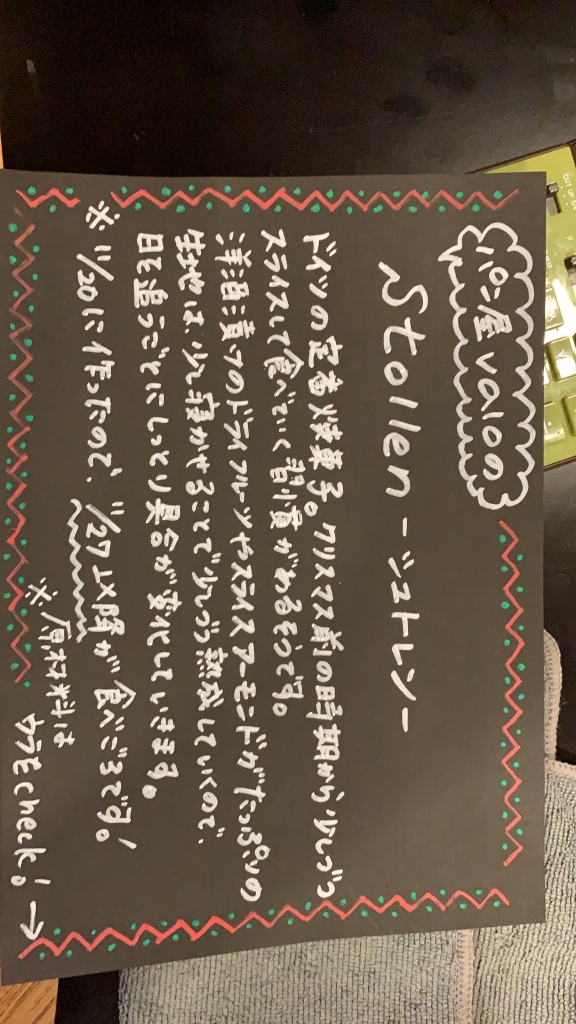 パン屋valoの
Stollen -シュトレン-
ドイツの定番焼菓子。クリスマス前の時期から少しづつ
スライスして食べていく習慣があるそうです。
洋酒漬けのドライフルーツやスライスアーモンドがたっぷりの
生地は、少し寝かせることで少しづつ熟成していくので、
日を追うごとにしっとり具合が変化していきます。
※ 11/20に作ったので、11/27以降が食べごろです!
※原材料は
ウラをcheck! →
CUT UP S